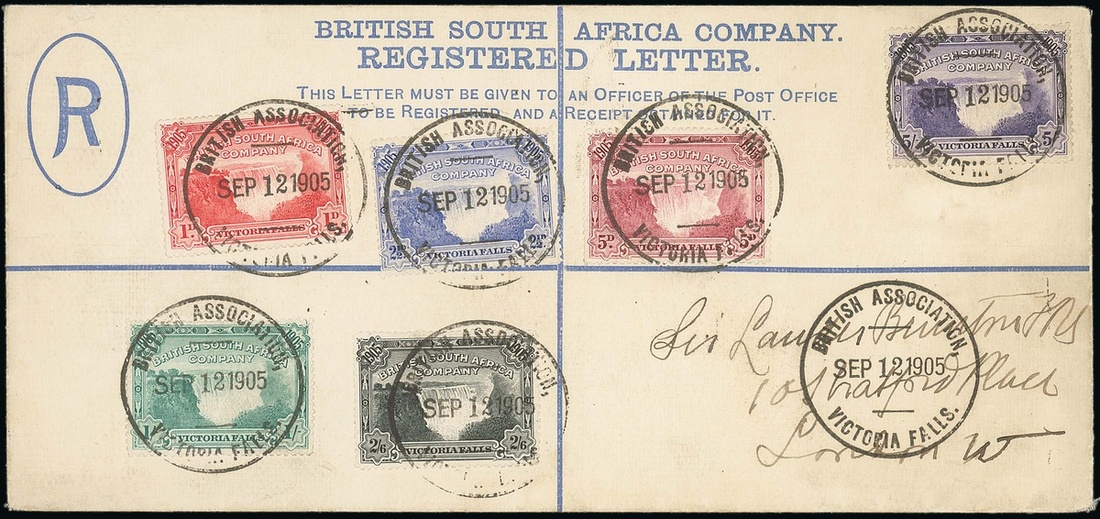 BRITISH SOUTH AFRICA COMPANY.
REGISTERED LETTER.
THIS LETTER MUST BE GIVEN TO AN OFFICER OF THE POST OFFICE
TO BE REGISTERED, AND A RECEIPT OBTAINED FOR IT.
R
1905 1905
BRITISH SOUTH AFRICA
COMPANY
5/ 5/
VICTORIA FALLS
BRITISH ASSOCIATION,
SEP 12 1905
VICTORIA FALLS.
1905
BRITISH SOUTH AFRICA
COMPANY
1D 1D
VICTORIA FALLS
BRITISH ASSOCIATION,
SEP 12 1905
VICTORIA FALLS.
1905
BRITISH SOUTH AFRICA
COMPANY
2½D 2½D
VICTORIA FALLS
BRITISH ASSOCIATION,
SEP 12 1905
VICTORIA FALLS.
1905 1905
BRITISH SOUTH AFRICA
COMPANY
5D 5D
VICTORIA FALLS
BRITISH ASSOCIATION,
SEP 12 1905
VICTORIA FALLS.
1905
BRITISH SOUTH AFRICA
COMPANY
1/- 1/-
VICTORIA FALLS
BRITISH ASSOCIATION,
SEP 12 1905
VICTORIA FALLS.
1905 1905
BRITISH SOUTH AFRICA
COMPANY
2/6 2/6
VICTORIA FALLS
BRITISH ASSOCIATION,
SEP 12 1905
BRITISH ASSOCIATION,
SEP 12 1905
VICTORIA FALLS.
Sir Lauder Brunton FRS
10 Stratford Place
London W